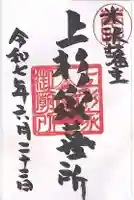 米沢藩主
上杉家墓所
令和七年六月二十三日
上杉家
御廟所